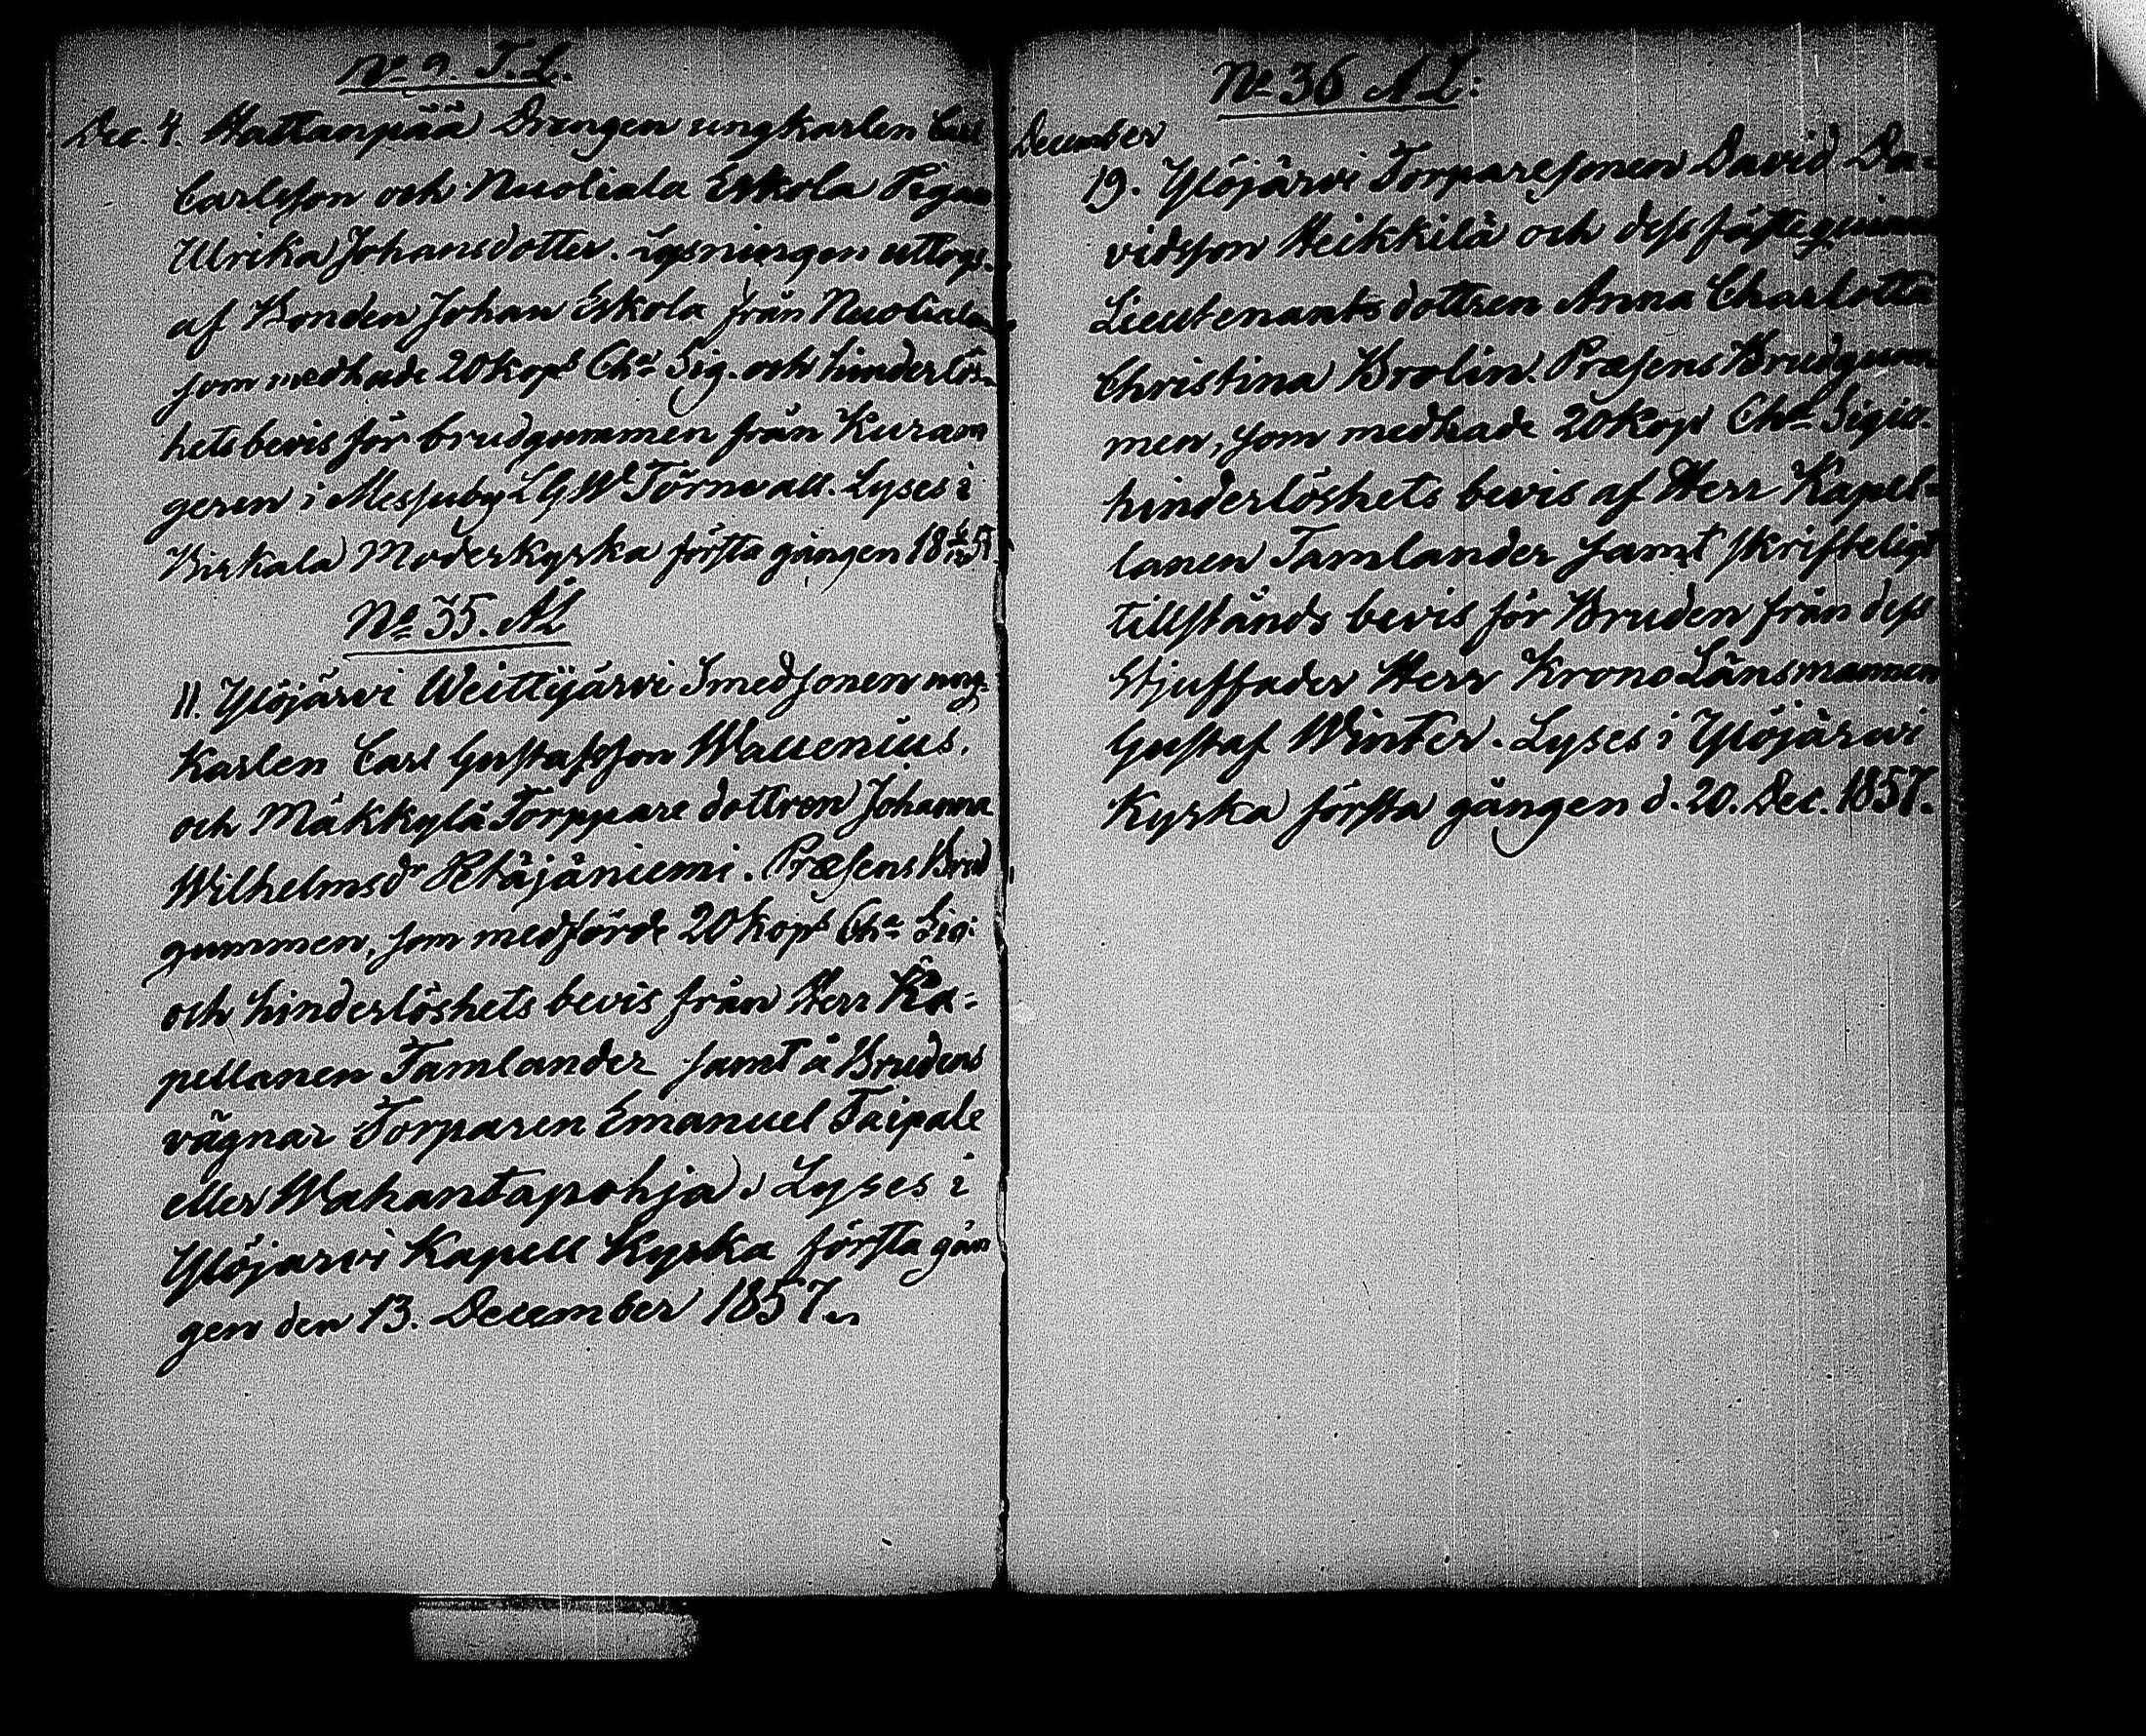 No 9. T. L.
Dec. 4. Hattanpää Drengen ungkarlen Carl
Carlsson och Nuoliala Eskola Pigan
Ulrika Johansdotter. Lysningen uttogs
af Bonden Johan Eskola från Nuoliala
som medhade 20 kops Cha Sig. och hinderlös-
hets bevis för brudgummen från
geren i Messuby Törnwall. Lyses i
Birkala Moderkyrka första gången 18 6/12 57.
No 35. AL
11. Ylöjärvi Weittijärvi Smedsonen ung-
karlen Carl Gustafsson Wallenius,
och Mäkkylä Torppare dottren Johanna
Wilhelmsdr Petäjäniemi. Præsens Brud
gummen, som medförde 20 kops Cha Sig:
och hinderlöshets bevis från Herr Ka=
pellanen Tamlander samt å Brudens
vägnar Torparen Emanuel Taipale
eller Wahantapohja. Lyses i
Ylöjärvi Kapell Kyrka första gån
gen den 13. December 1857.
No 36 AL:
December
19. Ylöjärvi Torparesonen David Da=
vidsson Heikkilä och dess fästeqvinna
Lieutenants dottren Anna Charlotta
Christina Brolin. Præsens Brudgum
men, som medhade 20 kops Cha Sigis.
hinderlöshets bevis af Herr Kapel=
lanen Tamlander samt skrifteligt
tillstånds bevis för Bruden från dess
Stjuffader Herr Krono Länsmannen
Gustaf Winter. Lyses i Ylöjärvi
Kyrka första gången d. 20. Dec. 1857.